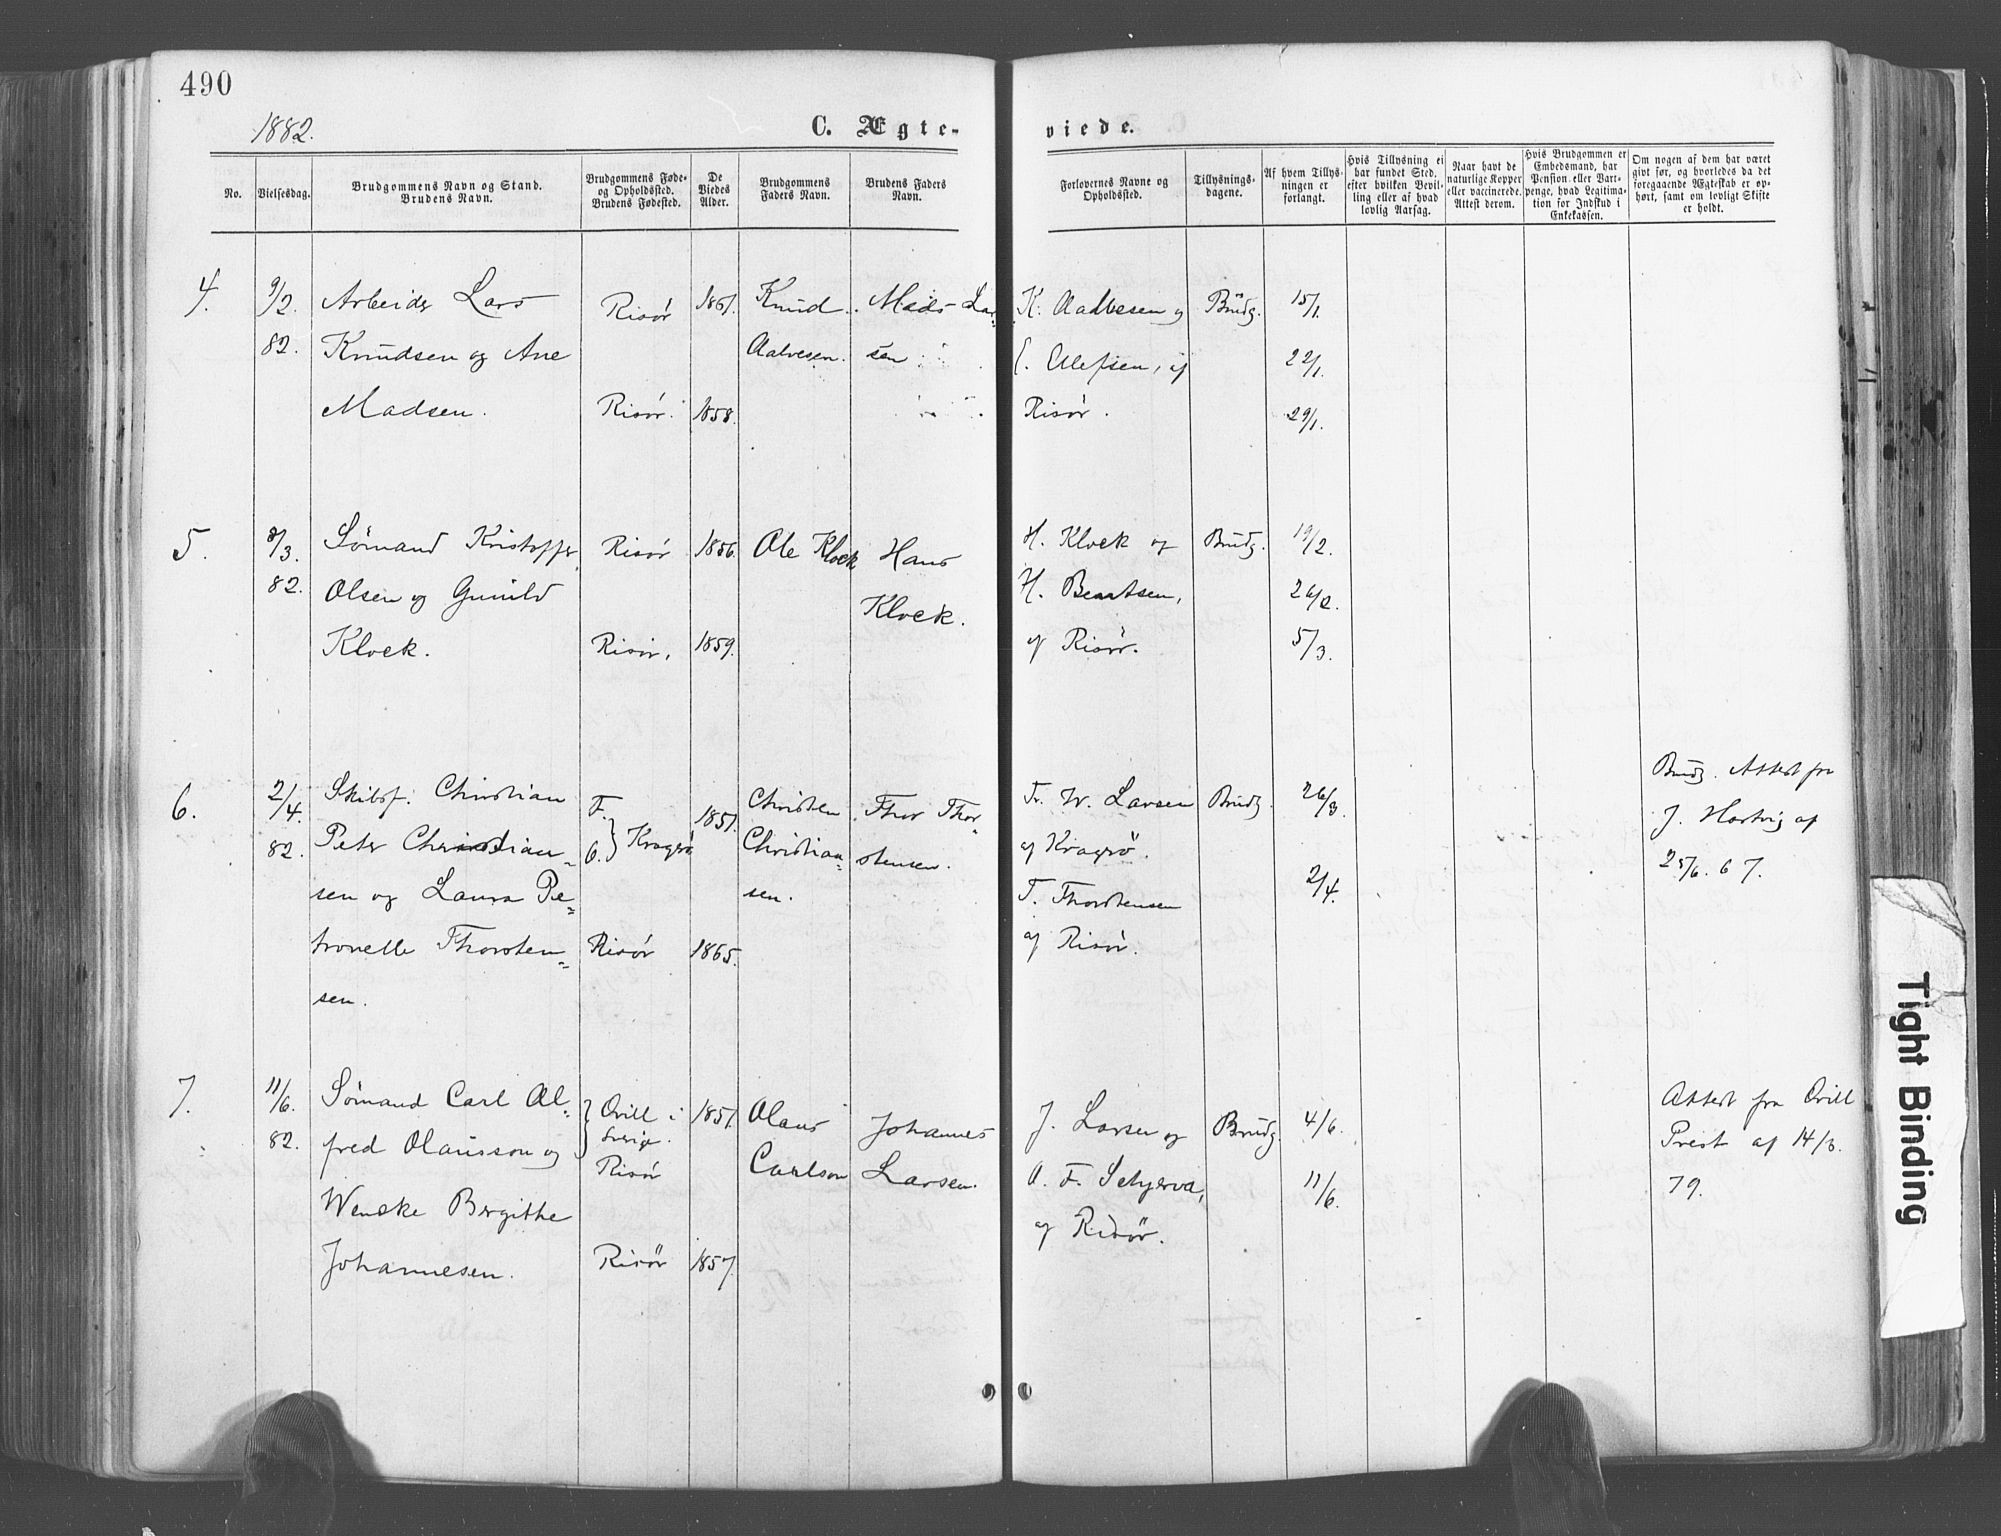 490
1882.
C. Ægte-
viede.
No.
Vielsesdag.
Brudgommens Navn og Stand.
Brudens Navn.
Brudgommens Føde-
og Opholdssted.
Brudens Fødested.
De
Viedes
Alder.
Brudgommens
Faders Navn.
Brudens Faders
Navn.
Forlovernes Navne og
Opholdssted.
Tillysnings-
dagene.
Af hvem Tillys-
ningen er
forlangt.
Hvis Tillysning ei
har fundet Sted.
efter hvilken Bevil-
ling eller af hvad
lovlig Aarsag.
Naar havt de
naturlige Kopper
eller vaccinerede.
Attest derom.
Hvis Brudgommen er
Embedsmand, har
Pension eller Vart-
penge, hvad Legitima-
tion for Indskud i
Enkekassen.
Om nogen af dem har været
givt før, og hvorledes da det
foregaaende Ægteskab er op-
hørt, samt om lovligt Skifte
er holdt.
4.
9/2.
82.
Arbeider Lars
Knudsen og Ane
Madsen.
Risør
Risør.
1861.
1858.
Knud
Aalvesen.
Mads Lar-
sen
K. Aalvesen og
E. Ellefsen, af
Risør.
Brudg.
15/1.
22/1.
29/1.
5.
8/3.
82.
Sømand Kristoffer
Olsen og Gunild
Klock.
Risør
Risør.
1856.
1859.
Ole Klock
Hans
Klock.
H. Klock og
H. Berntsen,
af Risør.
Brudg.
19/2.
26/2.
5/3.
6.
2/4.
82.
Skibsf. Christian
Peter Christian-
sen og Laura Pe-
tronelle Thorsten-
sen.
F.
O. } Kragerø
Risør
1851.
1865.
Christen
Christian-
sen.
Thor Thor-
stensen.
Fr. W. Larsen
af Kragrö.
T. Thorstensen
af Risør.
Brudg.
26/3.
2/4.
Brudg. Attest fra
J. Hartvig af
25/6. 67.
7.
11/6.
82.
Sømand Carl Al-
fred Olausson og
Wencke Bergithe
Johannesen.
Qvill i
Sverige.
Risör
Risör
1851.
1857.
Olaus
Carlson
Johannes
Larsen.
J. Larsen og
A. F. Schjerva,
af Risör.
Brudg.
4/6.
11/6.
Attest fra Qvill
Prest af 14/3.
79.
Tight Binding